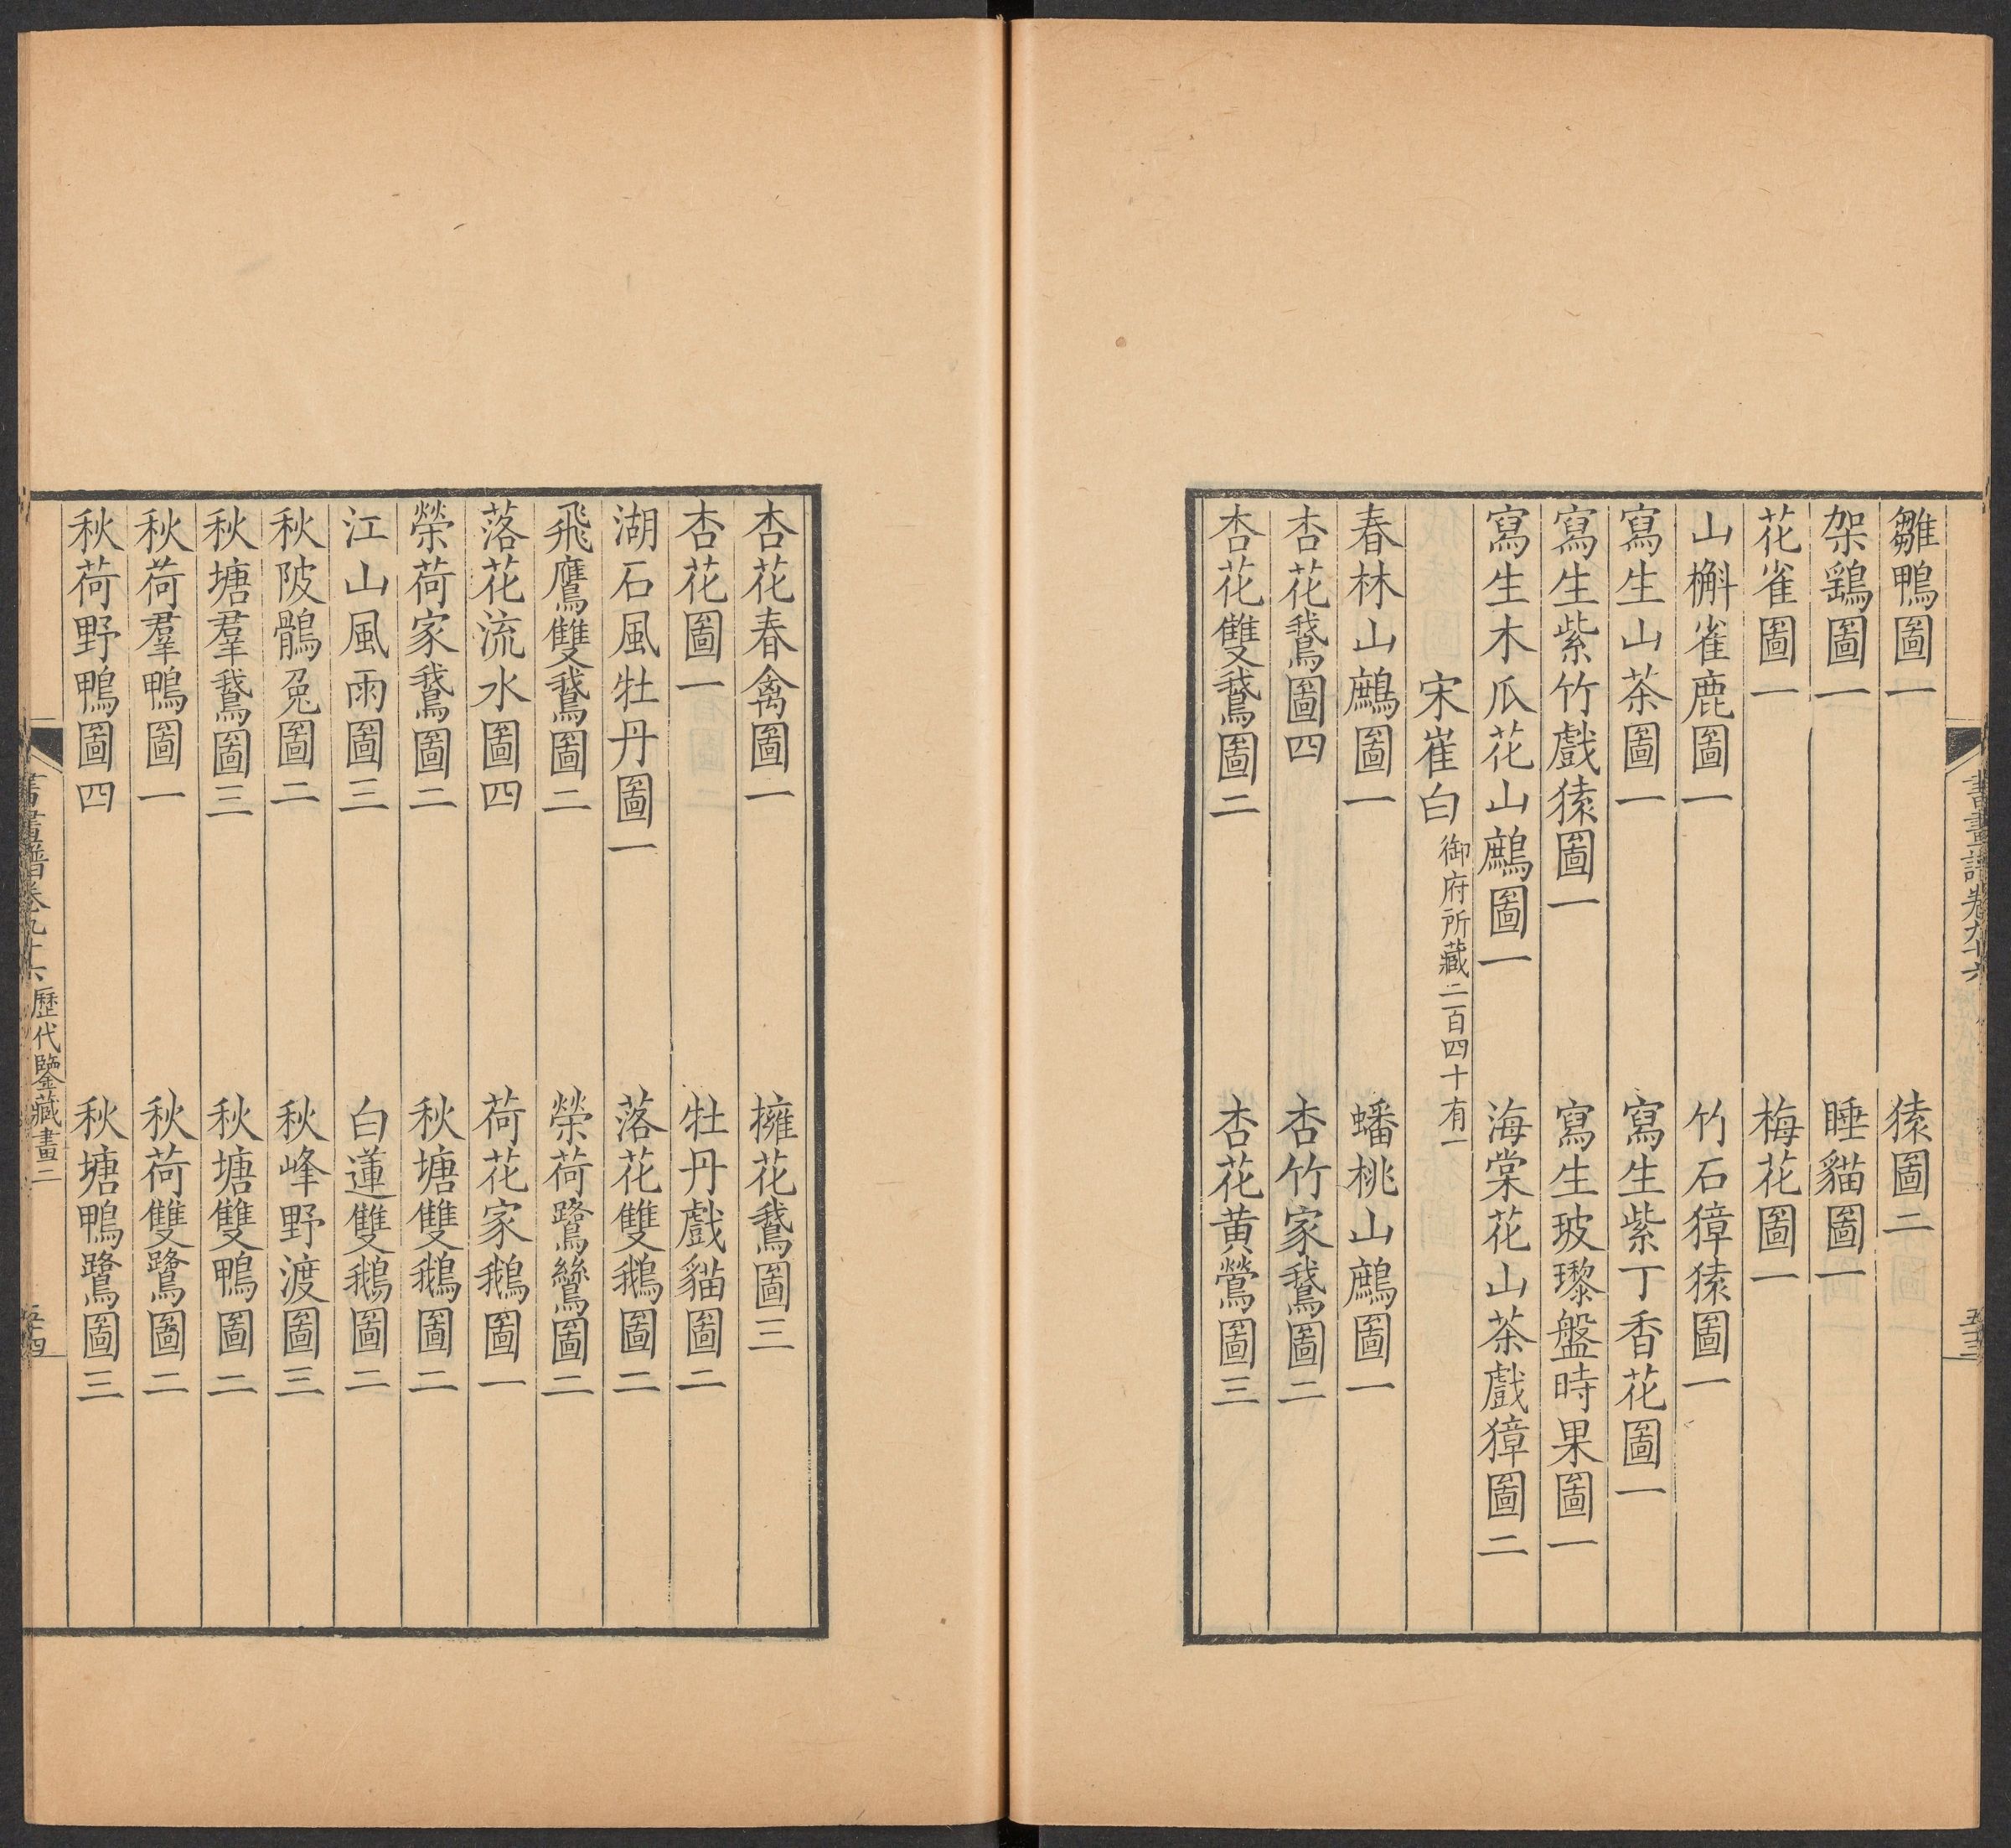 書畫譜卷九十六
五十三
雛鴨圖一 猿圖二
架鷂圖一 睡貓圖一
花雀圖一 梅花圖一
山槲雀鹿圖一 竹石獐猿圖一
寫生山茶圖一 寫生紫丁香花圖一
寫生紫竹戲猿圖一 寫生玻瓈盤時果圖一
寫生木瓜花山鷓圖一 海棠花山茶戲獐圖二
宋崔白 御府所藏二百四十有一
春林山鷓圖一 蟠桃山鷓圖一
杏花鵞圖四 杏竹家鵞圖二
杏花雙鵞圖二 杏花黄鶯圖三
杏花春禽圖一 擁花鵞圖三
杏花圖一 牡丹戲貓圖二
湖石風牡丹圖一 落花雙鵝圖二
飛鷹雙鵞圖二 榮荷鷺鷥圖二
落花流水圖四 荷花家鵝圖一
榮荷家鵞圖二 秋塘雙鵝圖二
江山風雨圖三 白蓮雙鵝圖二
秋陂鶻兔圖二 秋峰野渡圖三
秋塘羣鵞圖三 秋塘雙鴨圖二
秋荷羣鴨圖一 秋荷雙鷺圖二
秋荷野鴨圖四 秋塘鴨鷺圖三
書畫譜卷九十六 歷代鑒藏畫二
五十四